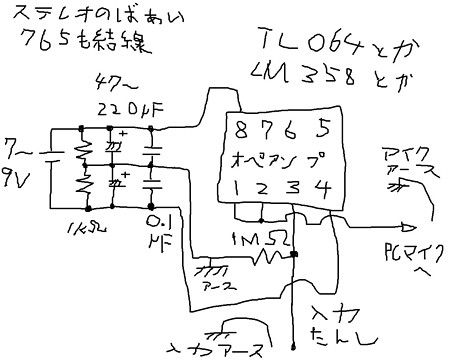 ステレオのばあい
765も結線
TL064とか
LM358とか
47～
220μF
8 7 6 5
オペアンプ
1 2 3 4
7～
9V
マイク
アース
1kΩ
0.1
μF
1MΩ
アース
PCマイク
へ
入力
たんし
入力アース